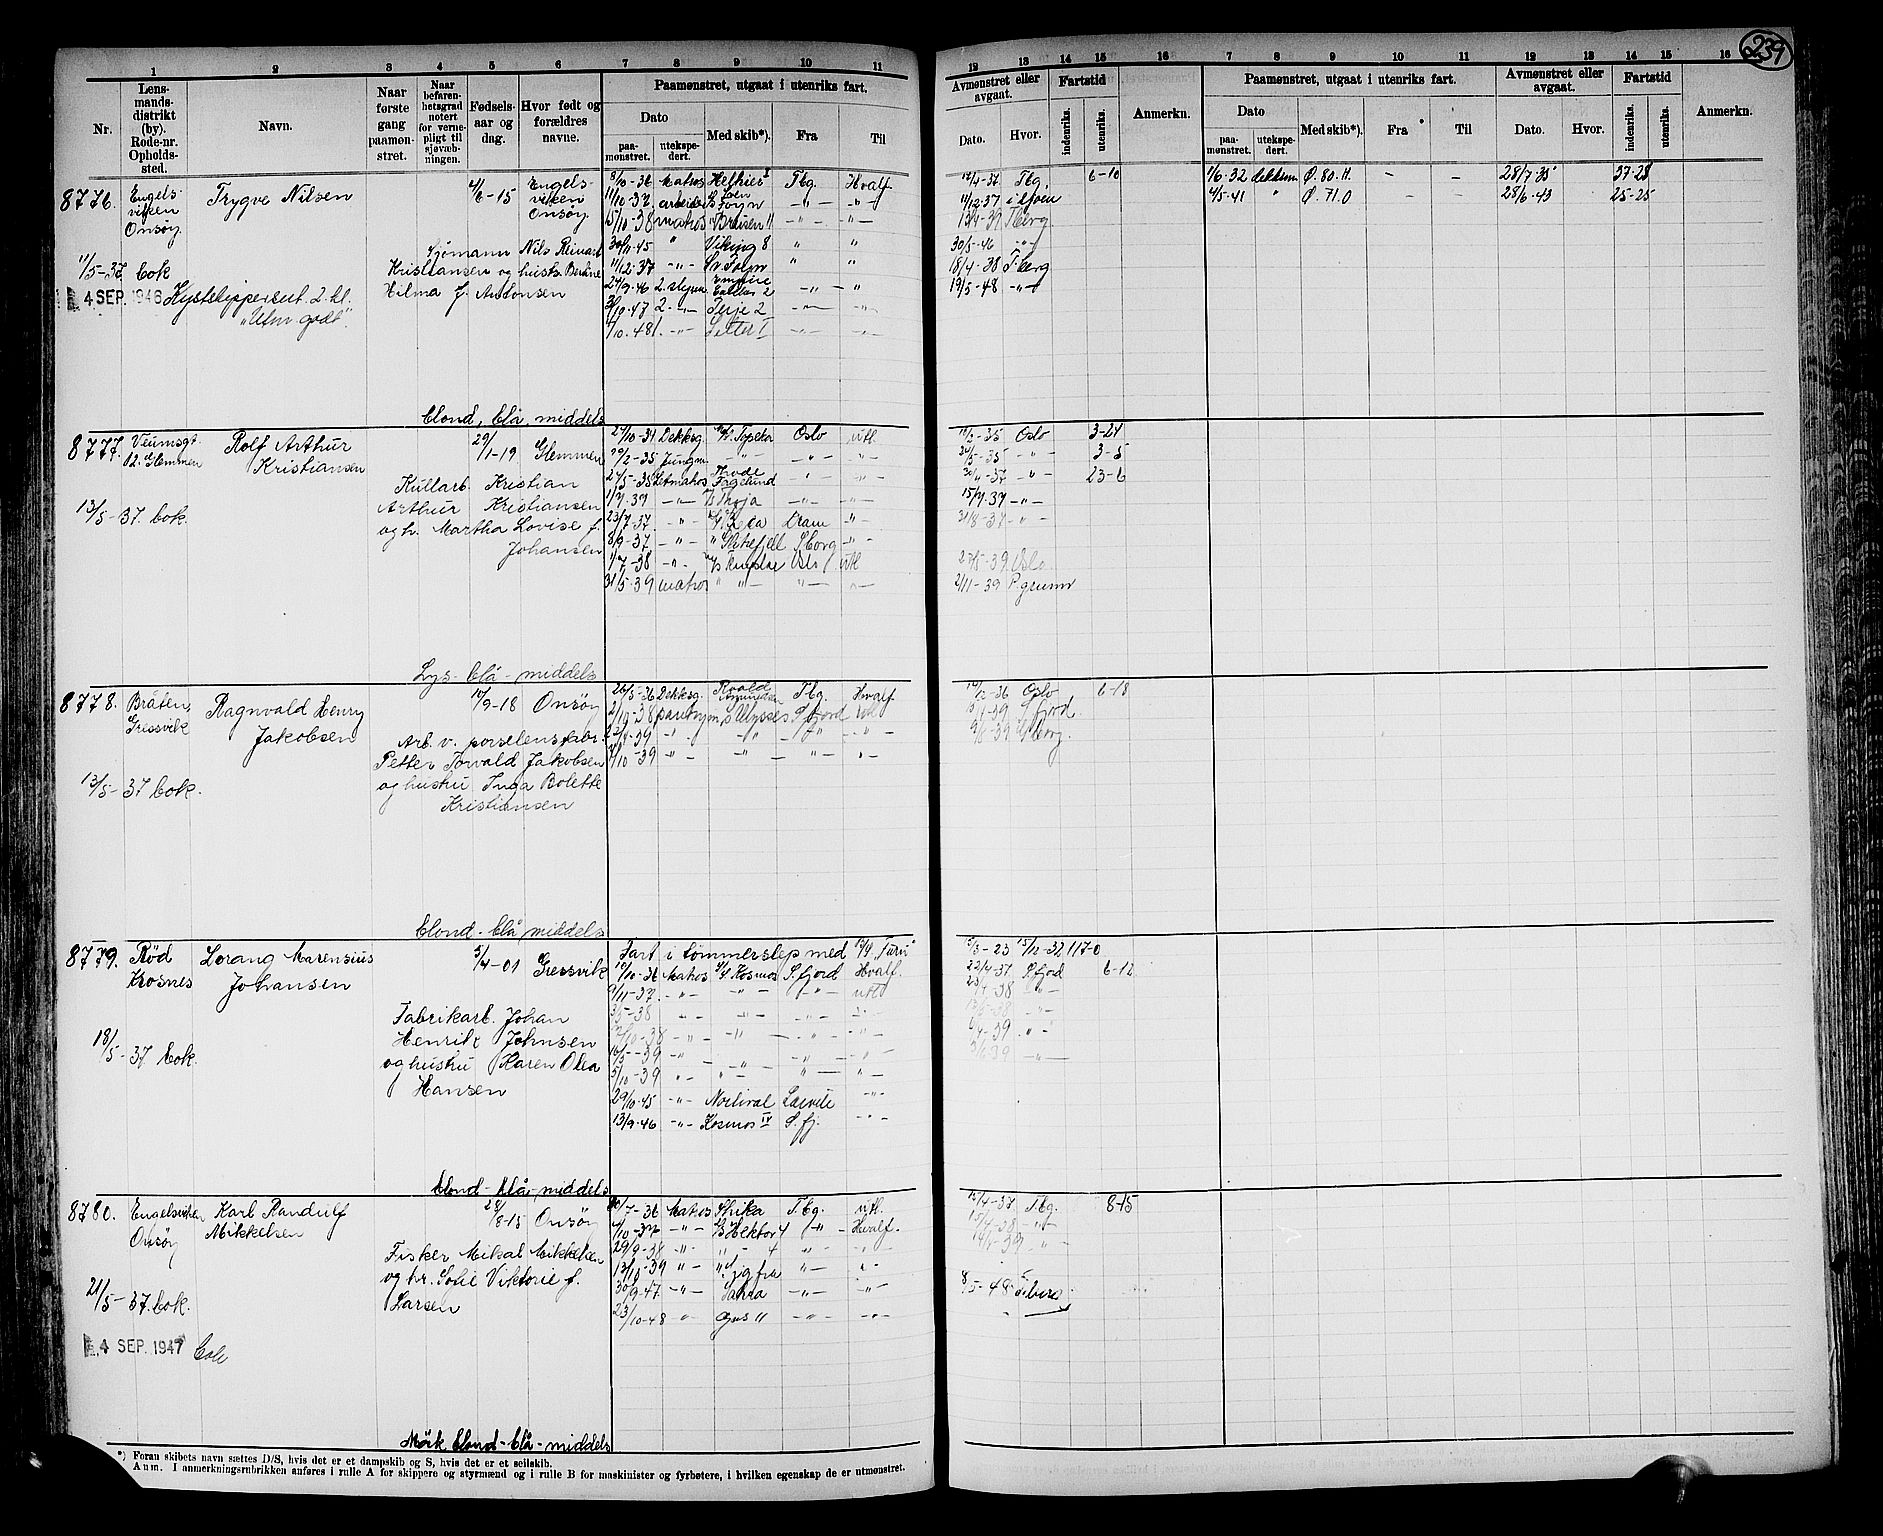 239
1 2 3 4 5 6 7 8 9 10 11 12 13 14 15 16 7 8 9 10 11 12 13 14 15 16
Nr.
Lensmandsdistrikt (by). Rode-nr. Opholdssted.
Navn.
Naar første gang paamønstret.
Naar befarenhetsgrad notert for vernepligt til sjøvæbningen.
Fødselsaar og dag.
Hvor født og forældres navne.
Paamønstret, utgaat i utenriks fart.
Dato
paamønstret.
utekspedert.
Med skib*).
Fra
Til
Avmønstret eller avgaat.
Dato.
Hvor.
Fartstid
indenriks.
utenriks.
Anmerkn.
Paamønstret, utgaat i utenriks fart.
Dato
paamønstret.
utekspedert.
Med skib*).
Fra
Til
Avmønstret eller avgaat.
Dato.
Hvor.
Fartstid
indenriks.
utenriks.
Anmerkn.
8776. Engelsviken Onsøy. Trygve Nilsen 4/6-15 Engelsviken Onsøy
Sjømann Nils Reinart
Kristiansen og hustr. Berthine
Hilma f. Antonsen
11/5-37 bok
4 SEP. 1946 Kystskippersert. 2. kl.
8/10-36 Matros Tbg. Hvalf.
11/10-37 arbeider -"- -"-
15/10-38 matros -"- -"-
30/11-45 " Viking 8 " "
11/12-37 -"- Sv. Foyn " "
24/9-46 -"- -"-
10-47 2. -"- Terje 2 -"- -"-
7/10-48 1. -"- -"- -"-
12/4-37 Tbg. 6-10
11/12-37
13/4-39 Tberg.
30/5-46 -"-
18/4-38 Tberg
19/5-48 -"-
1/6-32 Ø.80.H. - - 28/7-35 37-28
4/5-41 " Ø.71.O - - 28/6-43 25-25
blond, blå, middels
8777. Veumsgt. 12. Glemmen Rolf Arthur Kristiansen 29/1-19 Glemmen
Kullarb. Kristian
Arthur Kristiansen
og h. Martha Lovise f.
Johansen
13/5-37. bok
27/10-34 Dekksg. Topeka Oslo utl.
20/2-35 Jungm. -"- -"- -"-
27/5-35 Letmatros -"- -"-
1/7-39 -"- Thoja -"- -"-
23/7-37. -"- dram -"-
8/9-37 -"- " Skiefjell Sborg -"-
1/7-38 -"- Oslo utl
31/5-39 matros " "- "- "-
19/2-35 Oslo 3-24
-35 -"- 3-5
-37 -"- 23-6
15/7-39 -"-
31/8-37 -"-
27/5-39. Oslo.
2/11-39 P.grunn
Lys-blå-middels
8778. Bråten, Gressvik Ragnvald Henry Jakobsen 10/9-18 Onsøy
Arb. v. porselensfabr.
Petter Torvald Jakobsen
og hustru Inga Bolette
Kristiansen
13/5-37 bok.
26/5-36 Dekksg. Roald Amundsen Tbg. Hvalf
-38 Ulysses Sfjord utl
-39 -"- -"- -"- -"-
10-39 -"- -"- -"- -"-
-36 Oslo 6-18
-39 Sfjord.
-39
blond-blå, middels
8779. Rød Krosnes Lorang Marensius Johansen 5/4-01 Gressvik
Fabrikarb. Johan
Henrik Johnsen
og hustru Karen Olea
Hansen
18/5-37 bok.
Fart i tømmerslep med
10/10-36 Matros Kosmos S.fjord Hvalf.
9/11-37. -"- -"- -"- utl
3/5-38 -"- -"- -"- -"-
-38 -"- -"- -"- -"-
16/5-39 -"- -"- -"- -"-
5/10-39 -"- -"- -"- -"-
29/10-45 -"- Norhval Larvik -"-
13/9-46 -"- Kosmos IV S.fj. -"-
15/3-23 15/12-32 117-0
22/4-37. S.fjord 6-12
-38 -"-
-38 -"-
-39 -"-
-39 -"-
blond-blå-middels
8780. Engelsviken Onsøy Karl Randulf Mikkelsen 28/8-15 Onsøy
Fisker Mikal Mikkelsen
og h. Sofie Viktorie f.
Larsen
21/5-37. bok.
4 SEP. 1947
-7-36 Matros Shika Tbg. utl.
4/10-37 -"- Hektor 4 -"- Hvalf.
29/9-38 -"- " - 4 -"- -"-
13/11-39 -"- -"- -"-
30/9-47 -"- -"- -"-
23/10-48 " Gus 11 -"- -"-
12/4-37 Tbg. 8-15
15/4-38 -"-
14/5-39 -"-
8/5-48 Tberg
Mörk blond-blå-middels
*) Foran skibets navn sættes D/S, hvis det er et dampskib og S, hvis det er et seilskib.
Anm. I anmerkningsrubrikken anføres i rulle A for skippere og styrmænd og i rulle B for maskinister og fyrbøtere, i hvilken egenskap de er utmønstret.